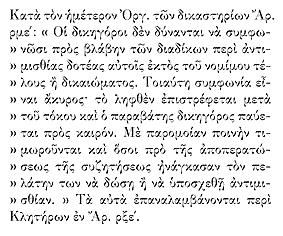 Κατὰ τὸν ἡμέτερον Ὀργ. τῶν δικαστηρίων Ἄρ.
ρμε΄: « Οἱ δικηγόροι δὲν δύνανται νὰ συμφω-
» νῶσι πρὸς βλάβην τῶν διαδίκων περὶ ἀντι-
» μισθίας δοτέας αὐτοῖς ἐκτὸς τοῦ νομίμου τέ-
» λους ἢ δικαιώματος. Τοιαύτη συμφωνία εἶ-
» ναι ἄκυρος· τὸ ληφθὲν ἐπιστρέφεται μετὰ
» τοῦ τόκου καὶ ὁ παραβάτης δικηγόρος παύε-
» ται πρὸς καιρόν. Μὲ παρομοίαν ποινὴν τι-
» μωροῦνται καὶ ὅσοι πρὸ τῆς ἀποπερατώ-
» σεως τῆς συζητήσεως ἠνάγκασαν τὸν πε-
» λάτην των νὰ δώσῃ ἢ νὰ ὑποσχεθῇ ἀντιμι-
» σθίαν. » Τὰ αὐτὰ ἐπαναλαμβάνονται περὶ
Κλητήρων ἐν Ἄρ. ρξε΄.